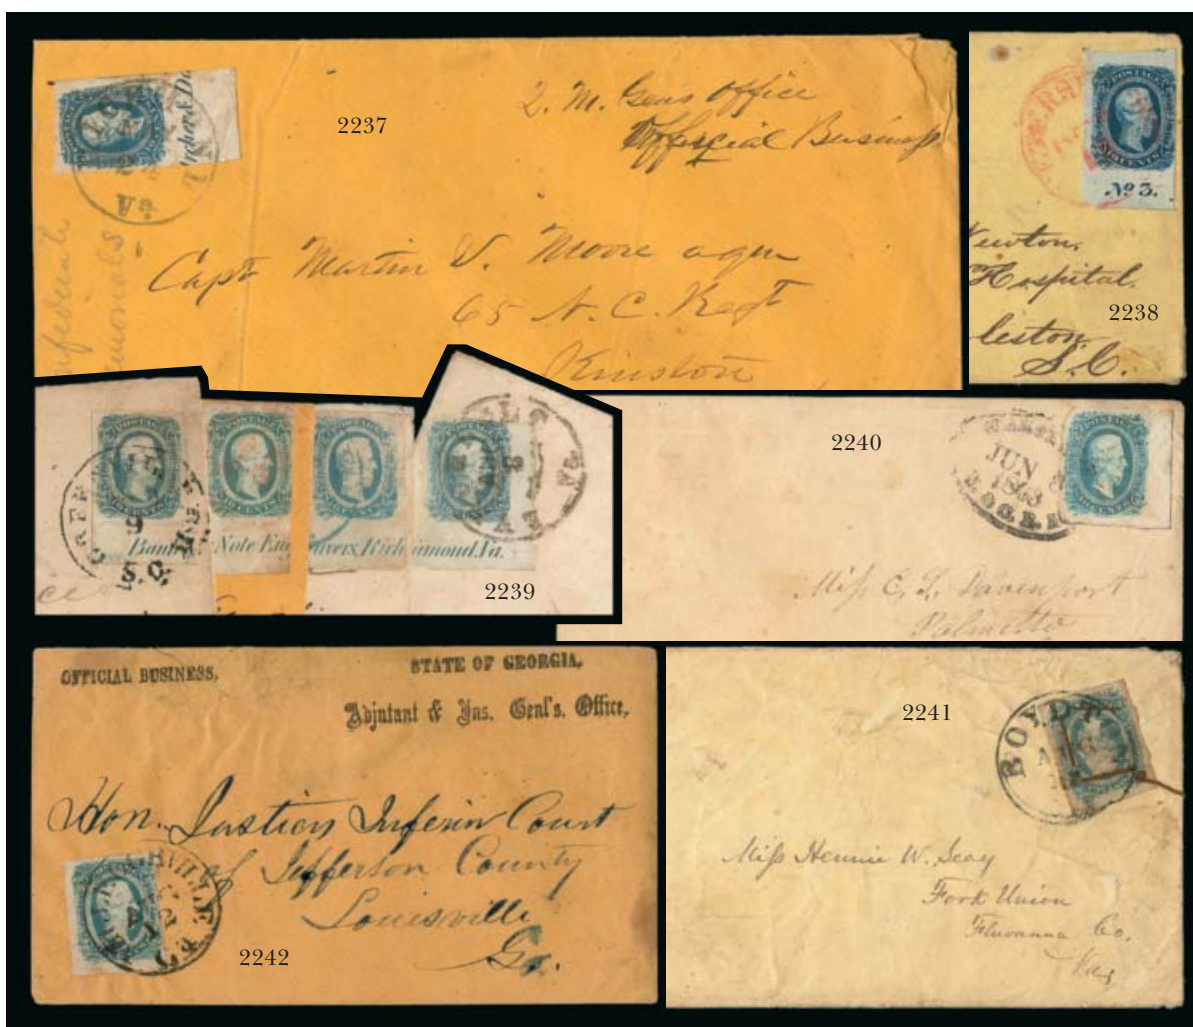 2237
Q. M. Gens Office
Official Business
Capt Martin V. Moore aqm
65 N. C. Regt
Kinston
Va
Archer & Da
POSTAGE
No 3.
Newton,
Hospital.
leston,
S.C.
2238
GREEN
9
S.C.
Bank Note Engravers, Richmond, Va.
2239
2240
JUN
1863
Miss C. L. Davenport
Palmetto
OFFICIAL BUSINESS,
STATE OF GEORGIA,
Adjutant & Ins. Genl's. Office,
Hon. Justices Inferior Court
of Jefferson County
Louisville
Ga.
2242
2241
BOYDT
Miss Hennie W. Seay
Fork Union
Fluvanna Co.
Va,